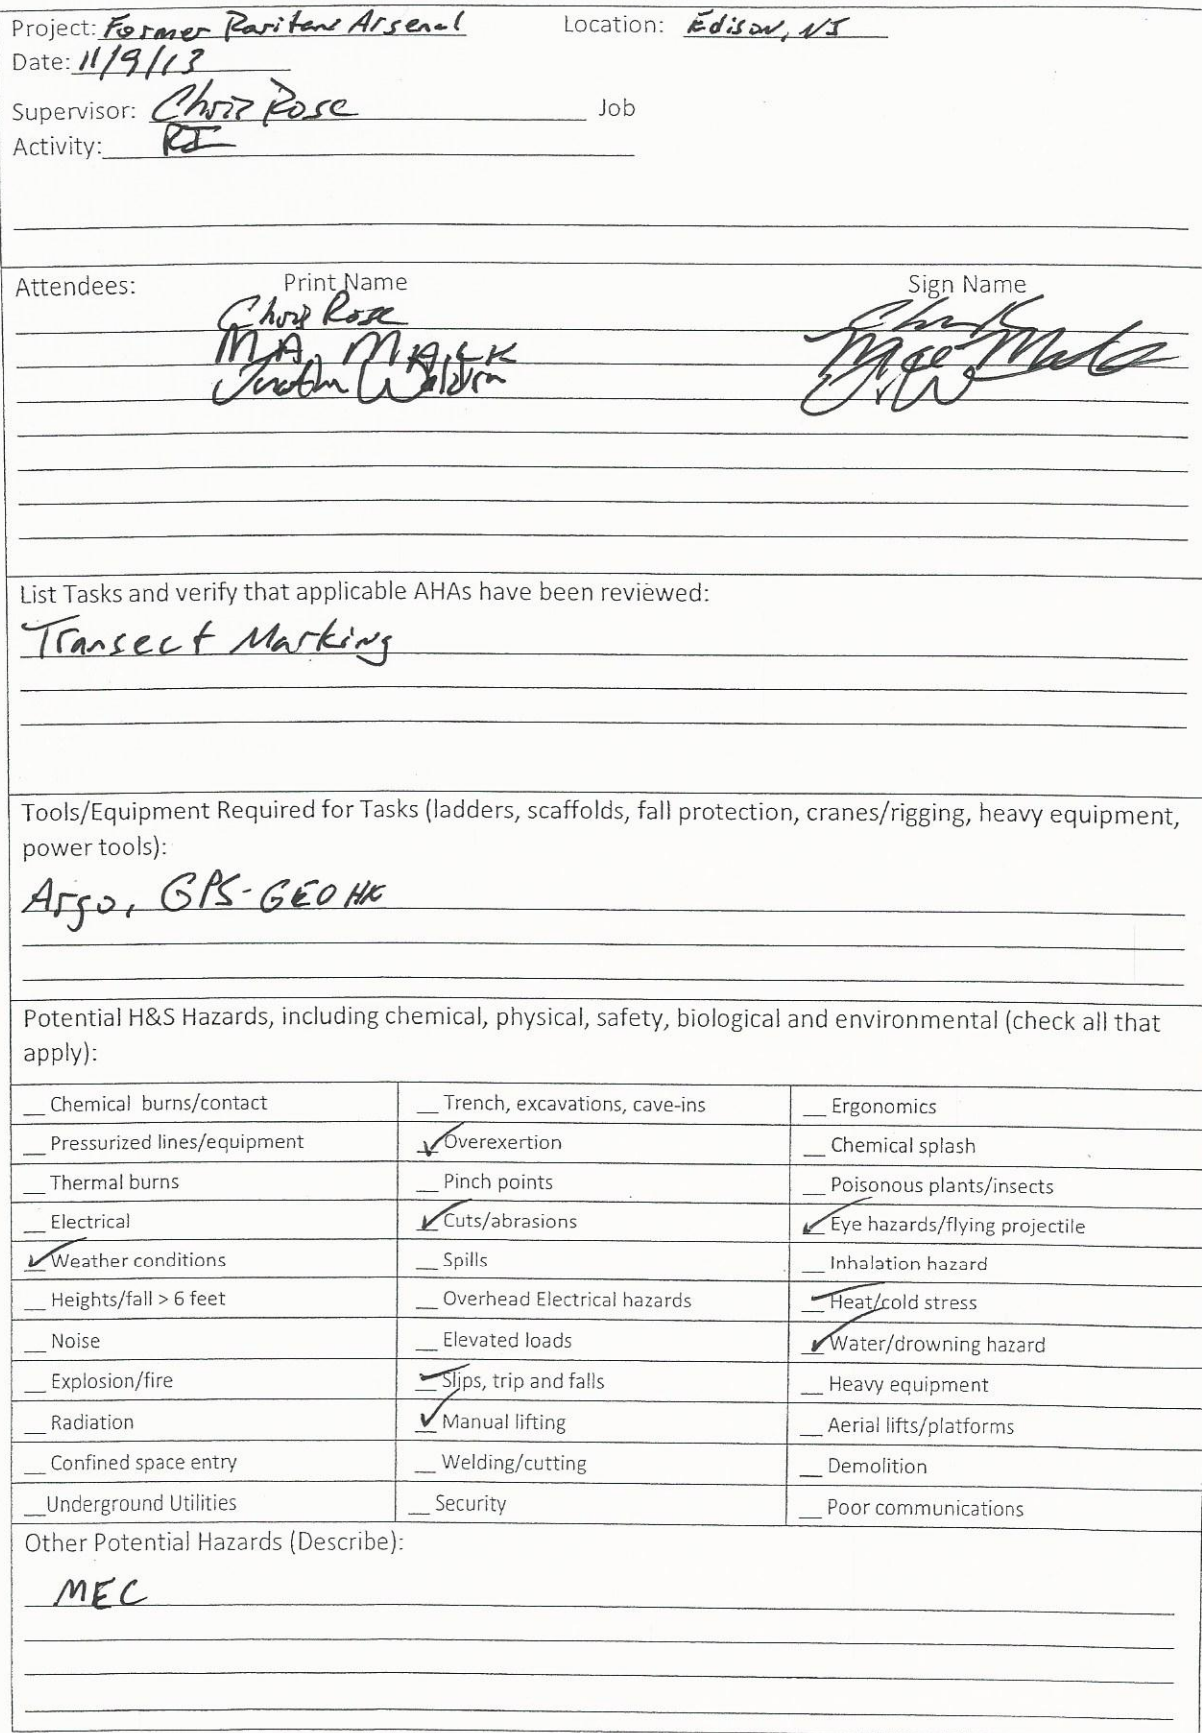 Project: Former Raritan Arsenal Location: Edison, NJ
Date: 11/9/13
Supervisor: Chris Rose Job
Activity: RI
Attendees: Print Name Sign Name
Chris Rose
M.A.
Justin
List Tasks and verify that applicable AHAs have been reviewed:
Transect Marking
Tools/Equipment Required for Tasks (ladders, scaffolds, fall protection, cranes/rigging, heavy equipment,
power tools):
Argo, GPS-GEO
Potential H&S Hazards, including chemical, physical, safety, biological and environmental (check all that
apply):
__ Chemical burns/contact __ Trench, excavations, cave-ins __ Ergonomics
__ Pressurized lines/equipment ✓ Overexertion __ Chemical splash
__ Thermal burns __ Pinch points __ Poisonous plants/insects
__ Electrical ✓ Cuts/abrasions ✓ Eye hazards/flying projectile
✓ Weather conditions __ Spills __ Inhalation hazard
__ Heights/fall > 6 feet __ Overhead Electrical hazards ✓ Heat/cold stress
__ Noise __ Elevated loads ✓ Water/drowning hazard
__ Explosion/fire ✓ Slips, trip and falls __ Heavy equipment
__ Radiation ✓ Manual lifting __ Aerial lifts/platforms
__ Confined space entry __ Welding/cutting __ Demolition
__ Underground Utilities __ Security __ Poor communications
Other Potential Hazards (Describe):
MEC